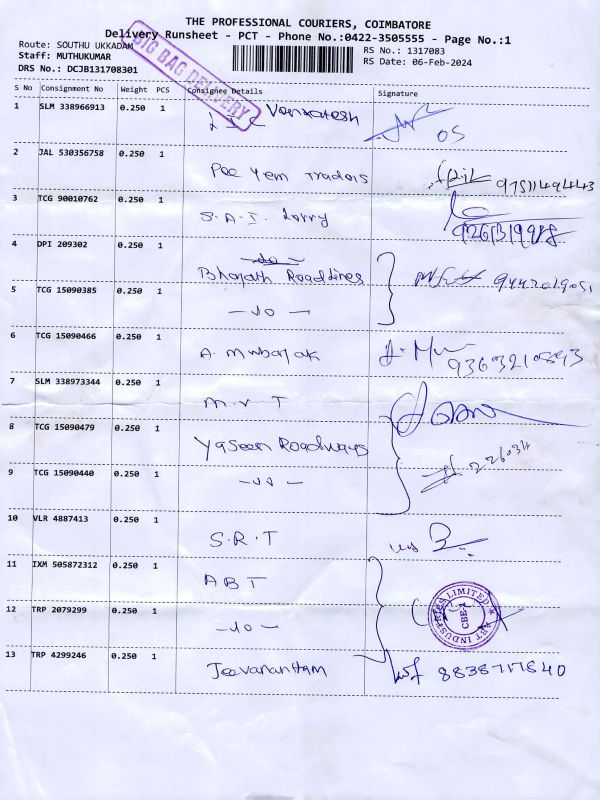 THE PROFESSIONAL COURIERS, COIMBATORE
Delivery Runsheet - PCT - Phone No.:0422-3505555 - Page No.:1
Route: SOUTHU UKKADAM
Staff: MUTHUKUMAR
DRS No.: DCJB131708301
RS No.: 1317083
RS Date: 06-Feb-2024
BIG BAG DELIVERY
S No Consignment No Weight PCS Consignee Details Signature
1 SLM 338966913 0.250 1 Venkatesh 05
2 JAL 530356758 0.250 1 Pee Yem Traders 9751149443
3 TCG 90010762 0.250 1 S.A.I. Lorry
4 DPI 209302 0.250 1 Bharath Roadlines
5 TCG 15090385 0.250 1 - do -
6 TCG 15090466 0.250 1 A. Mubarak 9363210893
7 SLM 338973344 0.250 1 M.V.T
8 TCG 15090479 0.250 1 Yaseen Roadways
9 TCG 15090440 0.250 1 - do -
10 VLR 4887413 0.250 1 S.R.T
11 IXM 505872312 0.250 1 ABT
12 TRP 2079299 0.250 1 - do -
ABT INDUSTRIES LIMITED
13 TRP 4299246 0.250 1 Jeevanantham